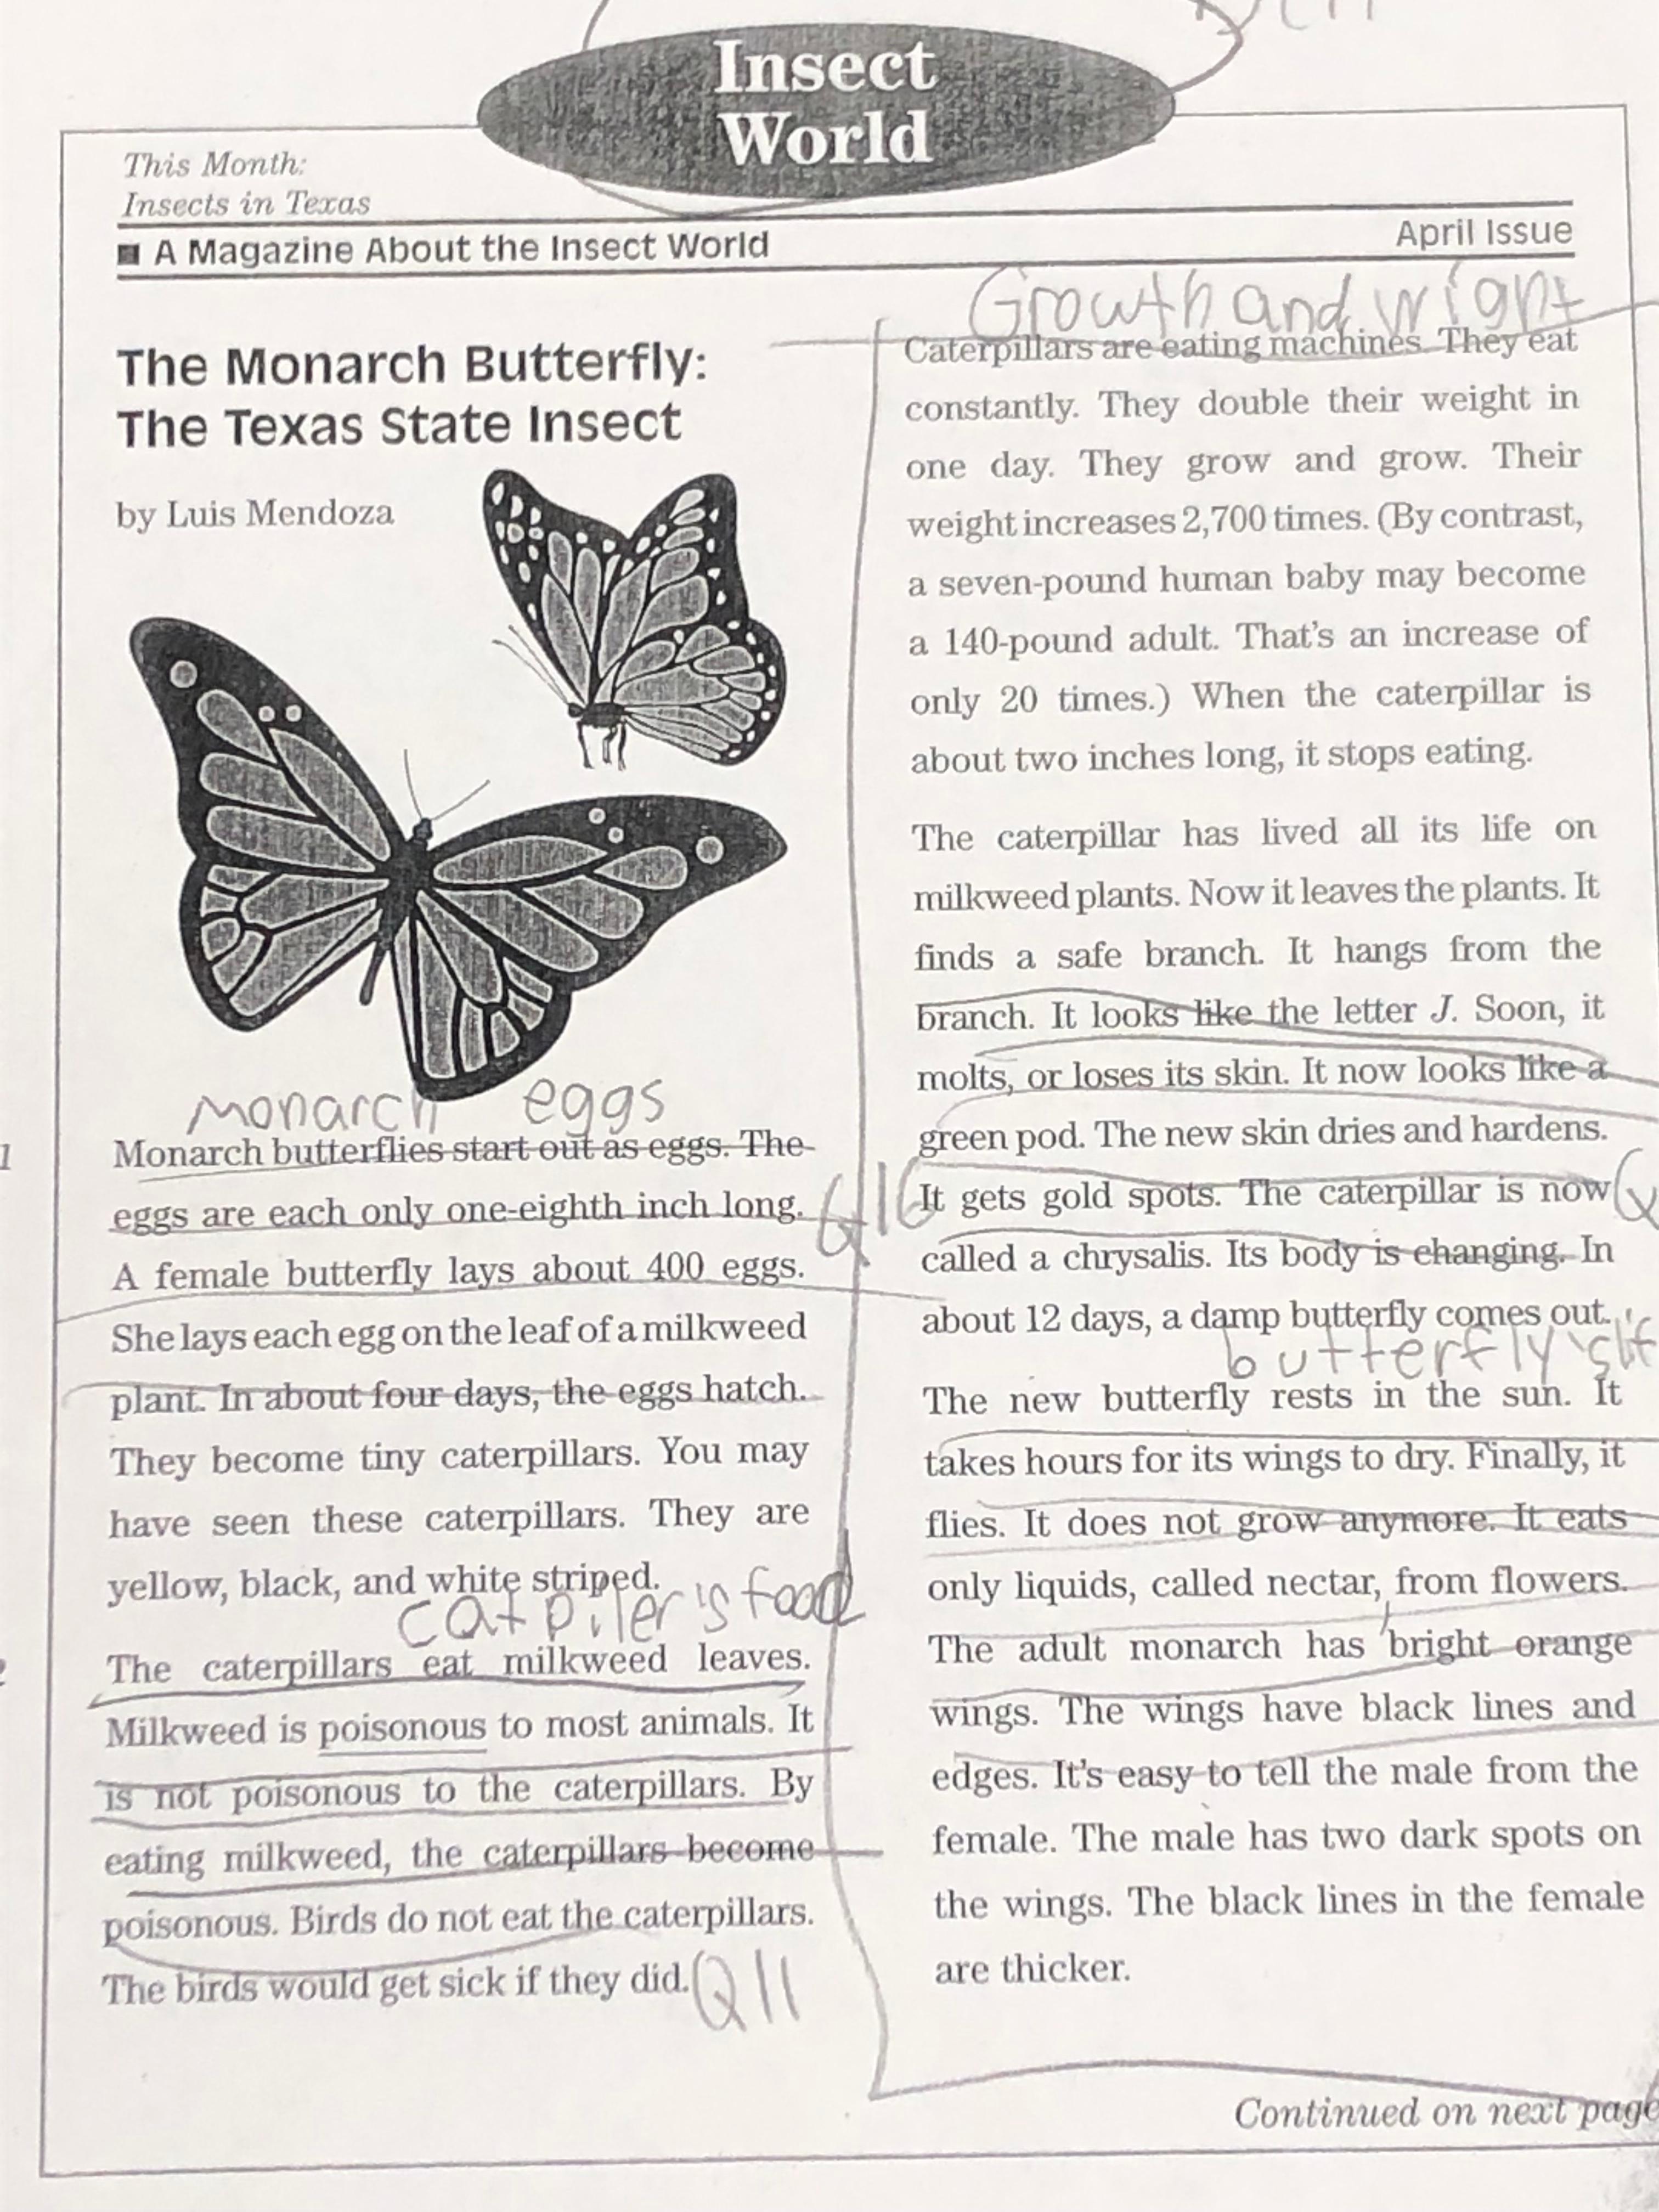 Insect
World
This Month:
Insects in Texas
■ A Magazine About the Insect World
April Issue
The Monarch Butterfly:
The Texas State Insect
by Luis Mendoza
Monarch eggs
1
Monarch butterflies start out as eggs. The
eggs are each only one-eighth inch long.
A female butterfly lays about 400 eggs.
She lays each egg on the leaf of a milkweed
plant. In about four days, the eggs hatch.
They become tiny caterpillars. You may
have seen these caterpillars. They are
yellow, black, and white striped.
Q16
catpiler's food
2
The caterpillars eat milkweed leaves.
Milkweed is poisonous to most animals. It
is not poisonous to the caterpillars. By
eating milkweed, the caterpillars become
poisonous. Birds do not eat the caterpillars.
The birds would get sick if they did.
Q11
Growth and wright
Caterpillars are eating machines. They eat
constantly. They double their weight in
one day. They grow and grow. Their
weight increases 2,700 times. (By contrast,
a seven-pound human baby may become
a 140-pound adult. That's an increase of
only 20 times.) When the caterpillar is
about two inches long, it stops eating.
The caterpillar has lived all its life on
milkweed plants. Now it leaves the plants. It
finds a safe branch. It hangs from the
branch. It looks like the letter J. Soon, it
molts, or loses its skin. It now looks like a
green pod. The new skin dries and hardens.
It gets gold spots. The caterpillar is now
called a chrysalis. Its body is changing. In
about 12 days, a damp butterfly comes out.
Q
butterfly's
The new butterfly rests in the sun. It
takes hours for its wings to dry. Finally, it
flies. It does not grow anymore. It eats
only liquids, called nectar, from flowers.
The adult monarch has bright orange
wings. The wings have black lines and
edges. It's easy to tell the male from the
female. The male has two dark spots on
the wings. The black lines in the female
are thicker.
Continued on next page